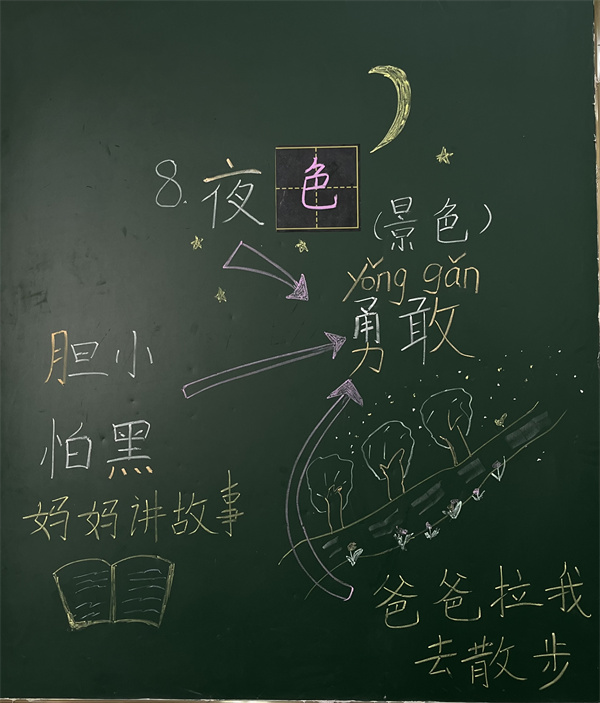 8.夜色
(景色)
yǒng gǎn
勇敢
胆小
怕黑
妈妈讲故事
爸爸拉我
去散步